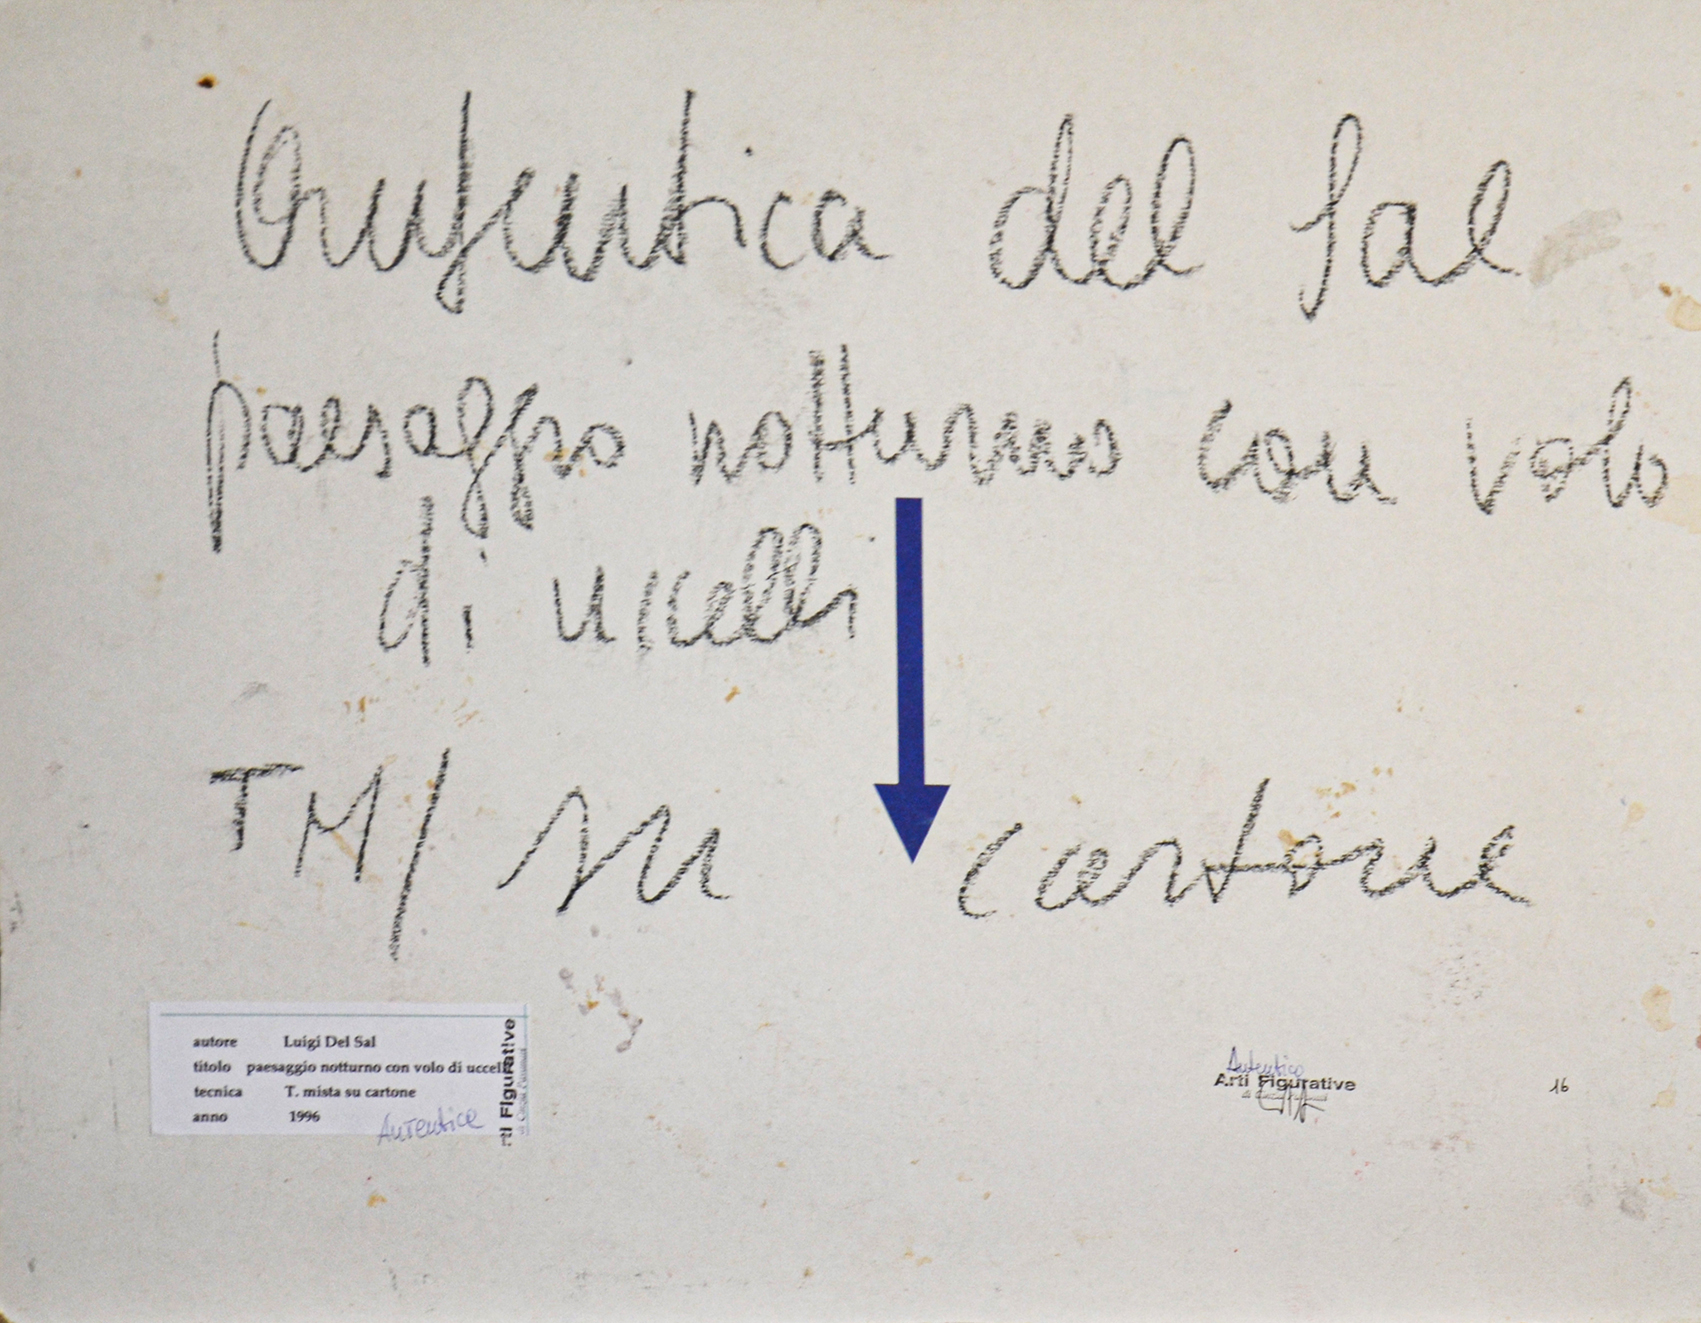 Autentica del Sal
paesaggio notturno con volo
di uccelli
TM/ su cartone
autore Luigi Del Sal
titolo paesaggio notturno con volo di uccelli
tecnica T. mista su cartone
anno 1996
Autentica
rti Figurative
Autentica
Arti Figurative
16